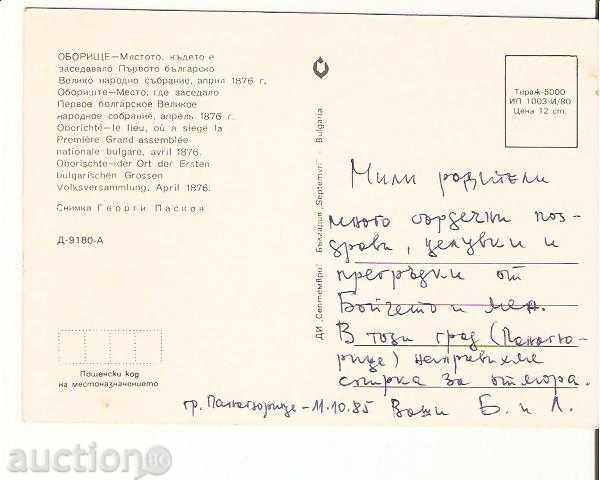 ОБОРИЩЕ—Мястото, където е
заседавало Първото българско
Велико народно събрание, април 1876 г.
Обориште—Место, где заседало
Первое болгарское Великое
народное собрание, апрель 1876 г.
Oborichté—le lieu, où a siegé la
Première Grand assemblée
nationale bulgare, avril 1876.
Oborischte—der Ort der Ersten
bulgarischen Grossen
Volksversammlung, April 1876.
Снимка Георги Пасков
Д-9180-А
Пощенски код
на местоназначението
ДИ „Септември“ България „Septemvri“ Bulgaria
Тираж-5000
ИП 1003-И/80
Цена 12 ст.
Мили родители
много сърдечни поз-
драви, целувки и
прегръдки от
и мен.
В този град (Панагю-
рище) направихме
спирка за отмора.
гр. Панагюрище – 11.10.85 Ваши Б. и Л.
auction BG